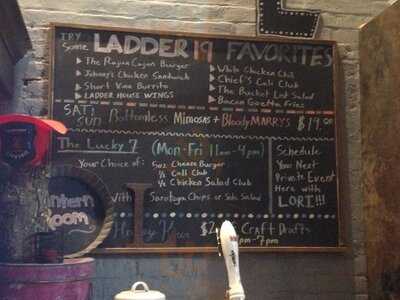 TRY
Some LADDER 19 FAVORITES
▶ The Ragin Cajun Burger
▶ Johnny's Chicken Sandwich
▶ Short Van Burrito
▶ LADDER HOUSE WINGS
▶ White Chicken Chili
▶ Chief's Cali Club
▶ The Bucket List Salad
▶ Bacon Gouda Fries
SAT &
SUN Bottomless Mimosas + Bloody MARRYS $19.00
The Lucky 7 (Mon-Fri 11am-4pm)
Your Choice of: 5oz Cheese Burger
½ Cali Club
½ Chicken Salad Club
With Saratoga Chips or Side Salad
Schedule
Your Next
Private Event
Here with
LORI!!!
Room
Craft Drafts
pm-7pm